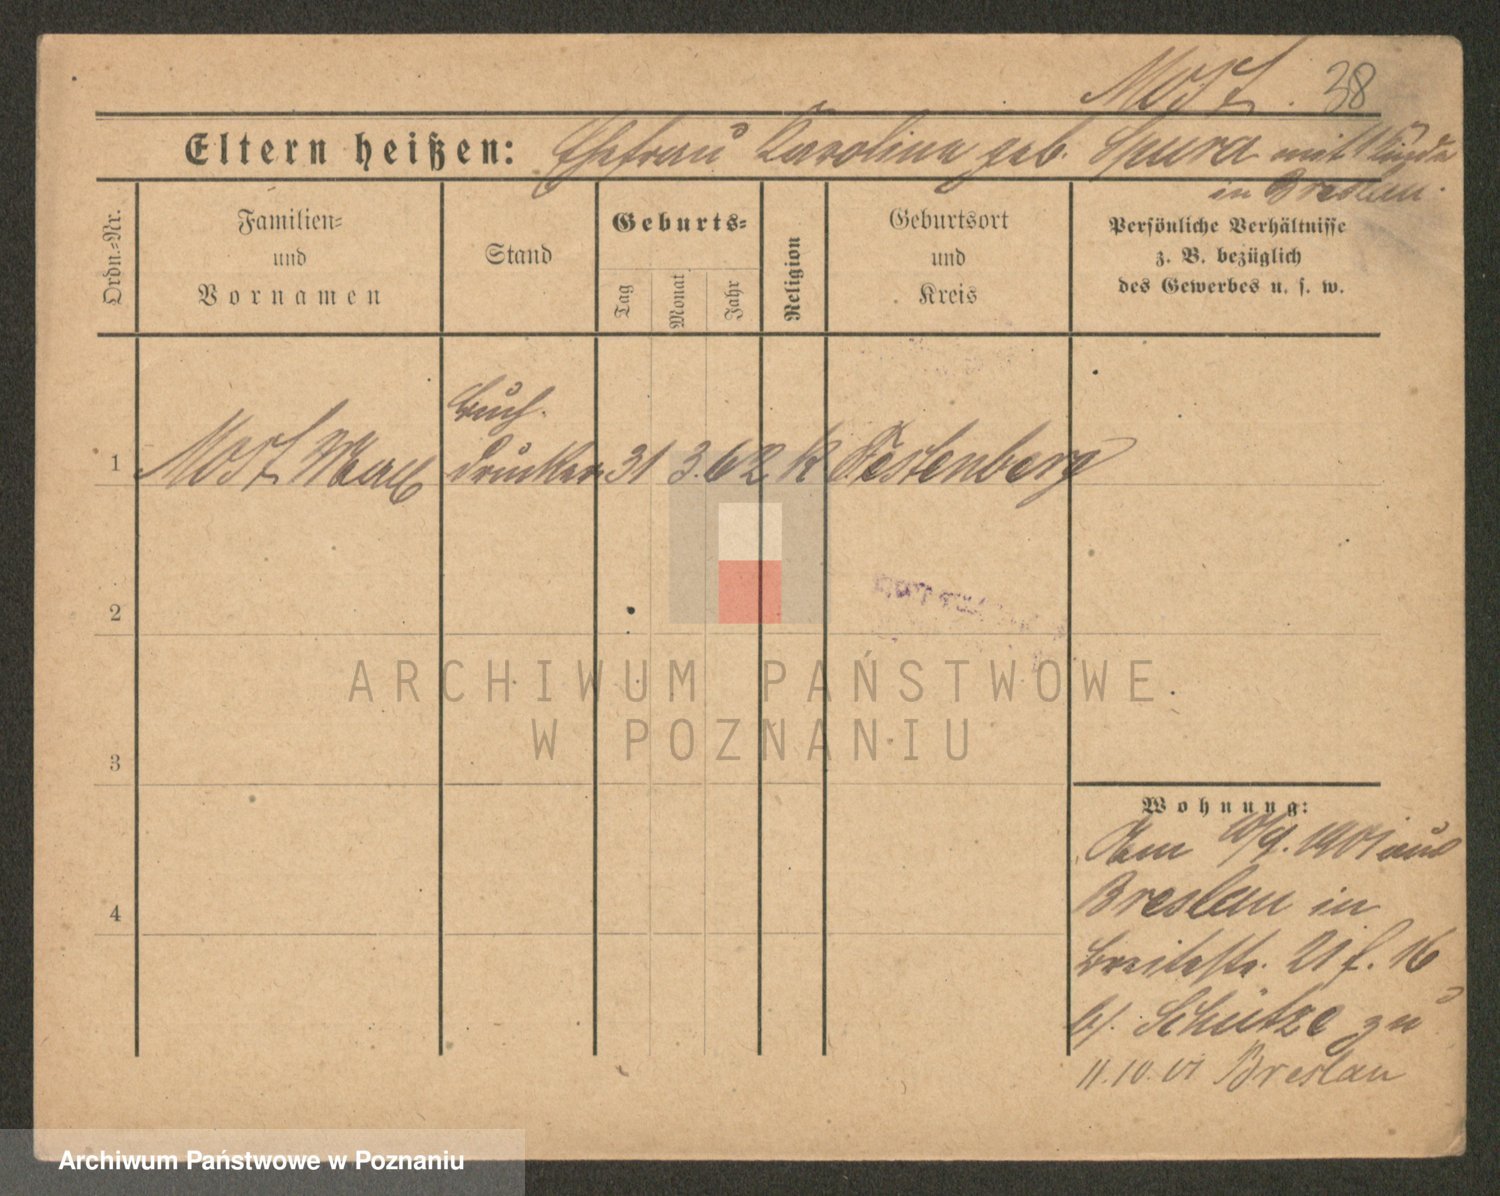 Most. 38
Eltern heißen: Ehefrau Karoline geb. Spura mit
in Breslau.
Ordn.-Nr.
Familien-
und
Vornamen
Stand
Geburts-
Tag
Monat
Jahr
Religion
Geburtsort
und
Kreis
Persönliche Verhältnisse
z. B. bezüglich
des Gewerbes u. s. w.
Buch-
1 Most Max drucker 31 3. 62 k Festenberg
2
3
4
ARCHIWUM PAŃSTWOWE
W POZNANIU
Wohnung:
Am 10/9. 1901 aus
Breslau in
Breitestr. 21 f. 16
b/. Schütze zu
11.10.01 Breslau
Archiwum Państwowe w Poznaniu